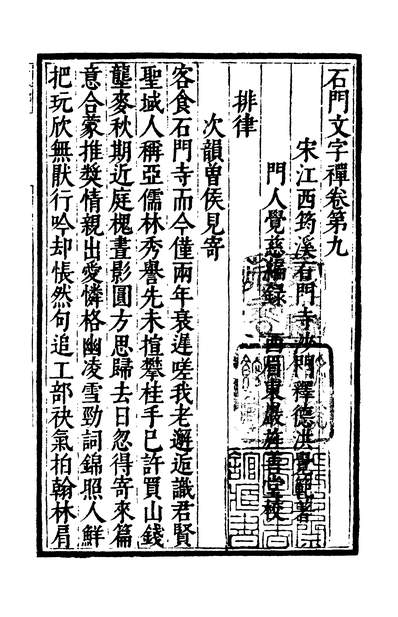 石門文字禪卷第九
宋江西筠溪石門寺沙門釋德洪覺範著
門人覺慈編錄　西眉東巖旌善堂校
排律
次韻曾侯見寄
客食石門寺而今僅兩年衰遲嗟我老邂逅識君賢
聖域人稱亞儒林秀譽先未揎攀桂手已許買山錢
壟麥秋期近庭槐晝影圓方思歸去日忽得寄來篇
意合蒙推獎情親出愛憐格幽凌雪勁詞錦照人鮮
把玩欣無猒行吟却悵然句追工部袂氣拍翰林肩